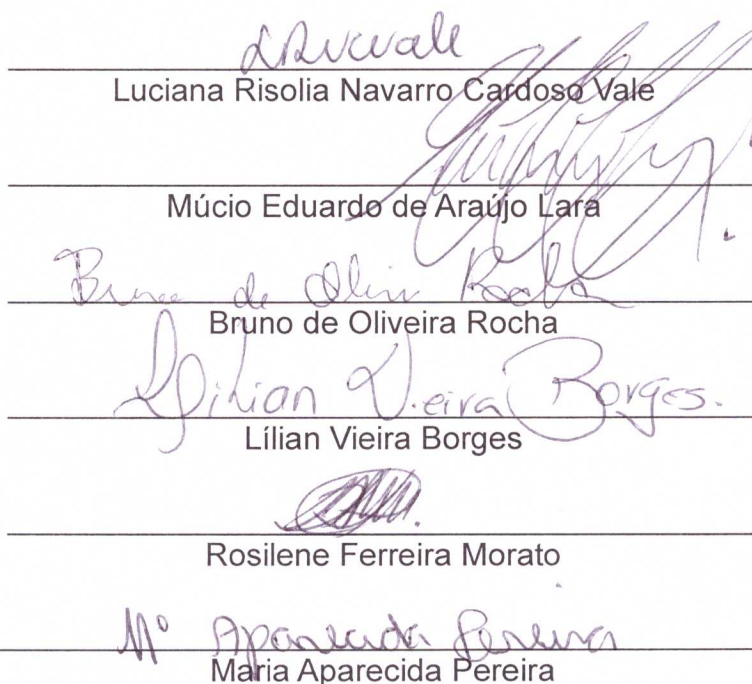 Luciana Risolia Navarro Cardoso Vale
Múcio Eduardo de Araújo Lara
Bruno de Oliv Rocha
Bruno de Oliveira Rocha
Lilian Vieira Borges.
Lílian Vieira Borges
Rosilene Ferreira Morato
Mª Aparecida Pereira
Maria Aparecida Pereira